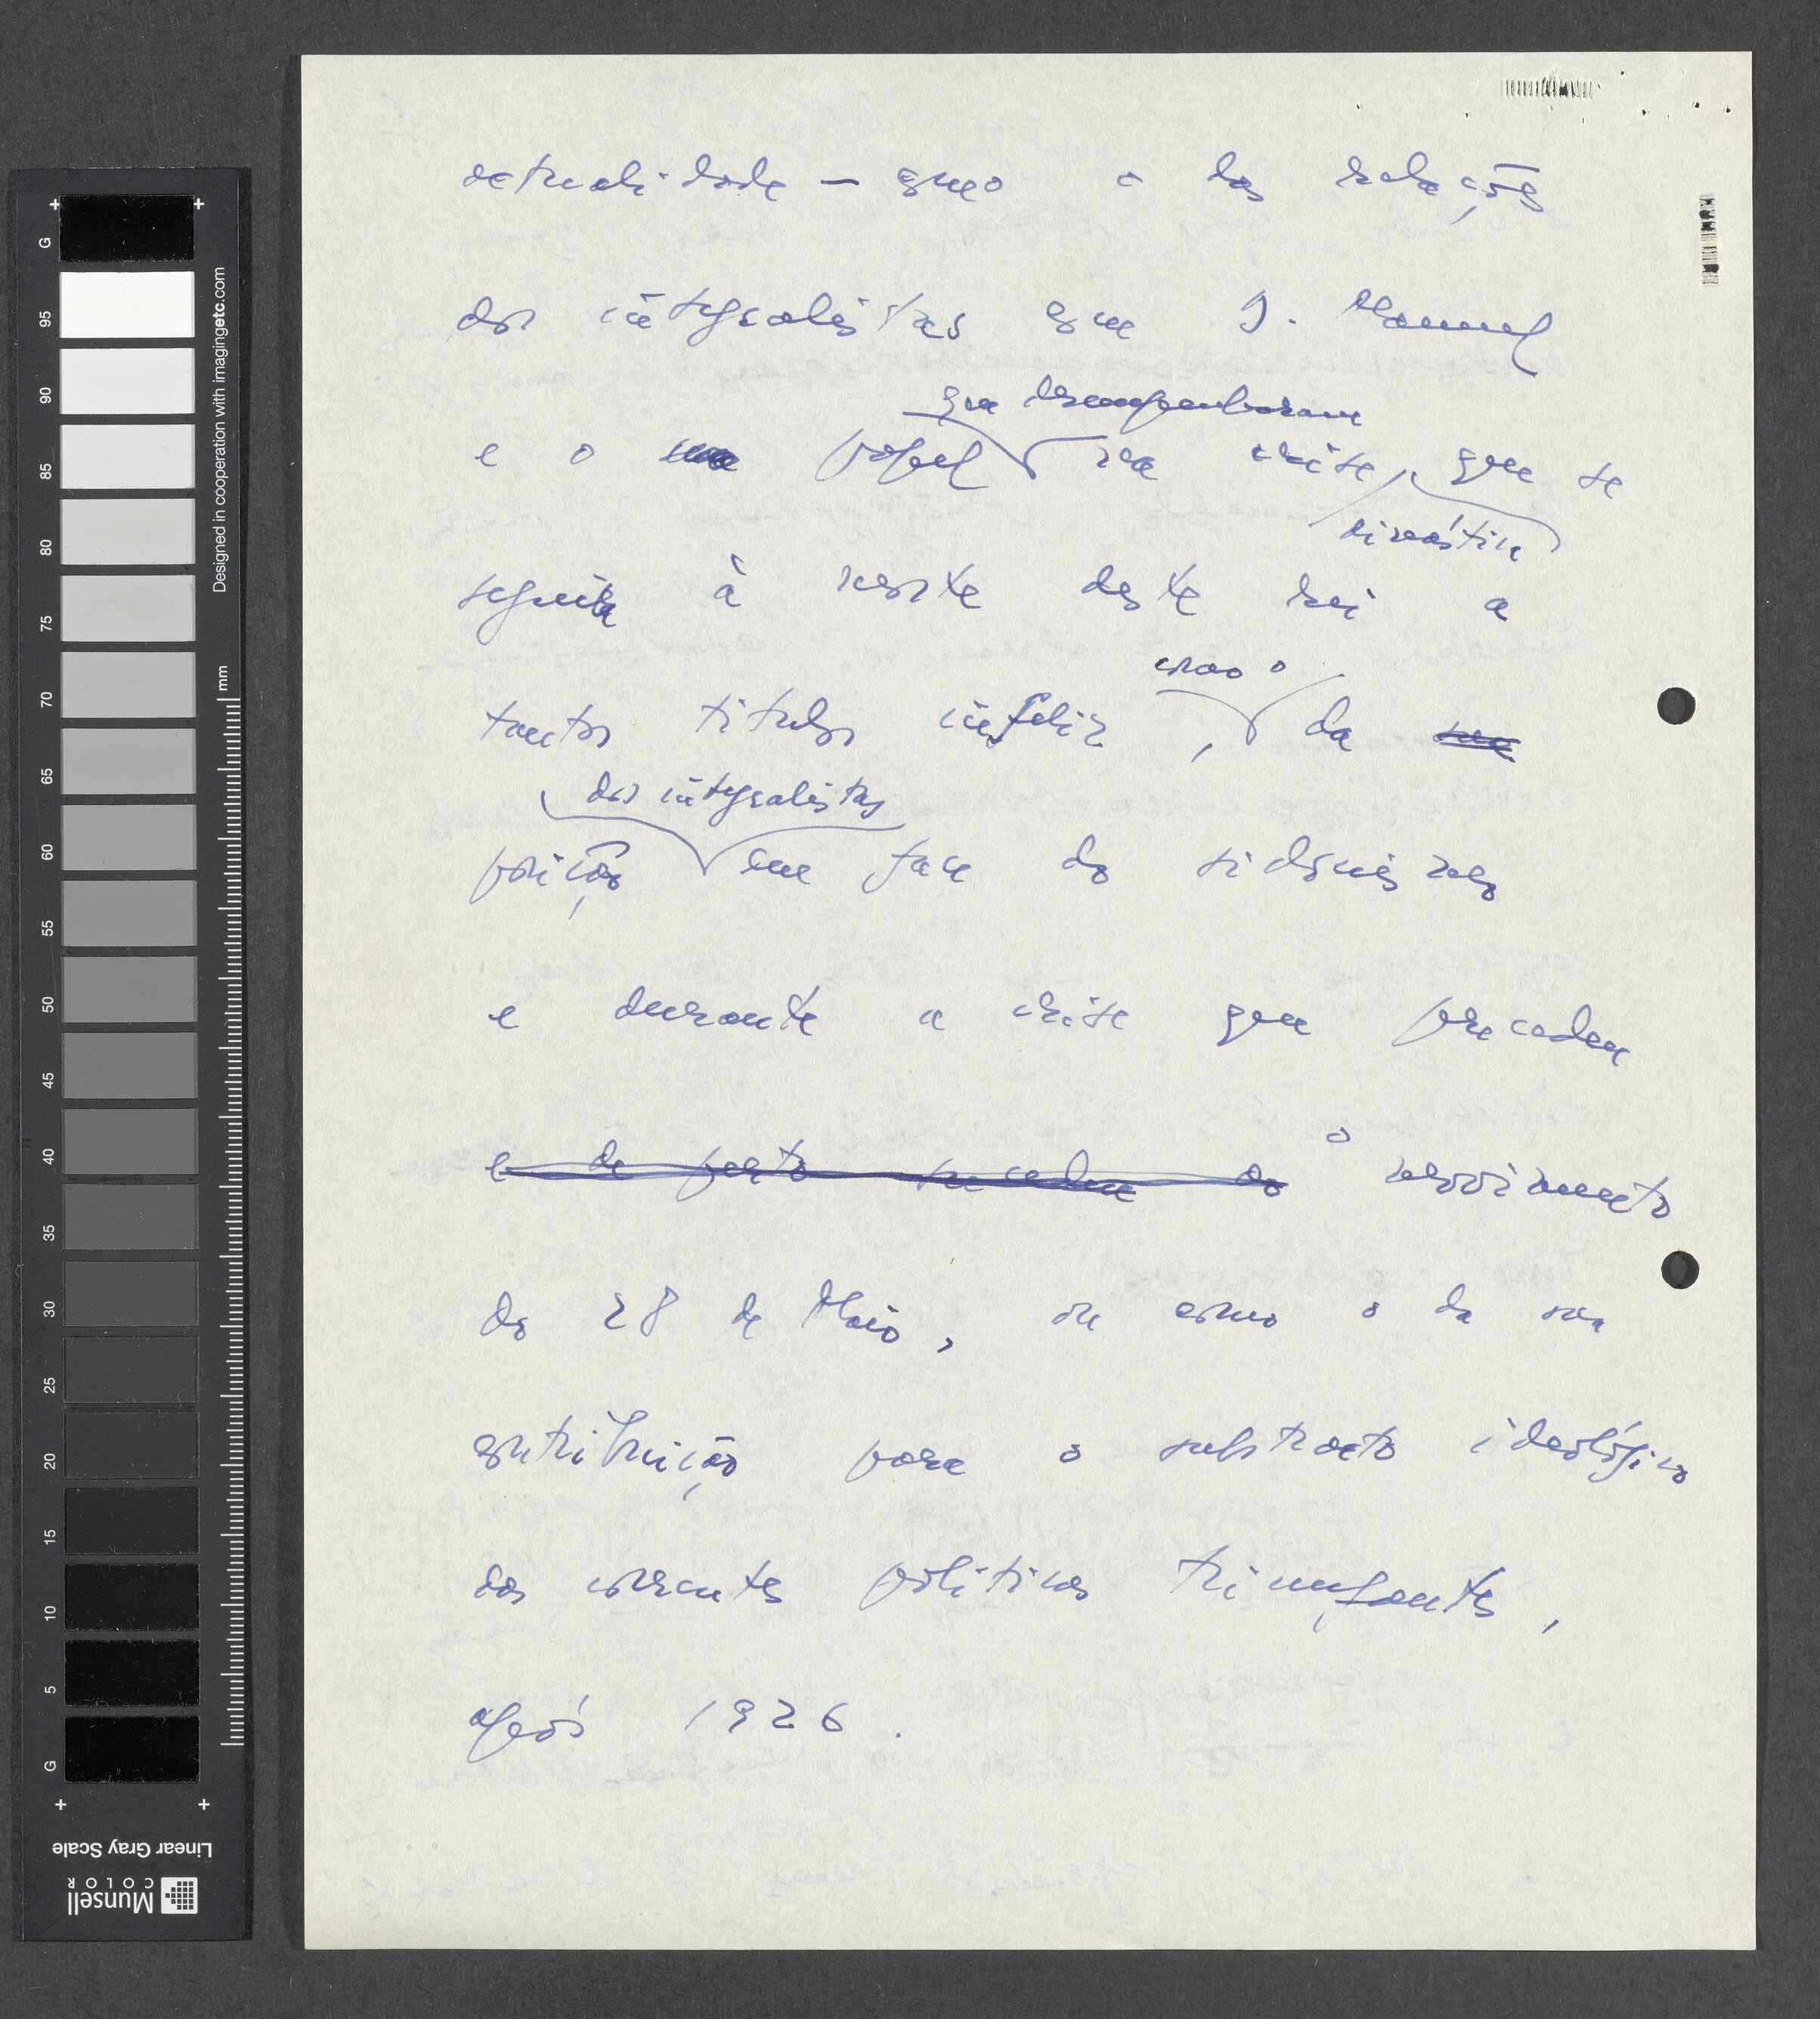 actualidade — como o das relações
dos integralistas com D. Manuel
que desempenharam
e o papel na crise, que se
dinástica
seguiu à morte deste rei a
como o
tantos títulos infeliz, da sua
dos integralistas
posição em face do sidonismo
e durante a crise que precedeu
e de perto precedeu ao o movimento
do 28 de Maio, ou como o da sua
contribuição para o substracto ideológico
das correntes políticas triunfantes,
após 1926.
G 95 90 85 80 75 70 65 60 55 50 45 40 35 30 25 20 15 10 5 G
mm
Designed in cooperation with imagingetc.com
Linear Gray Scale
Munsell
COLOR